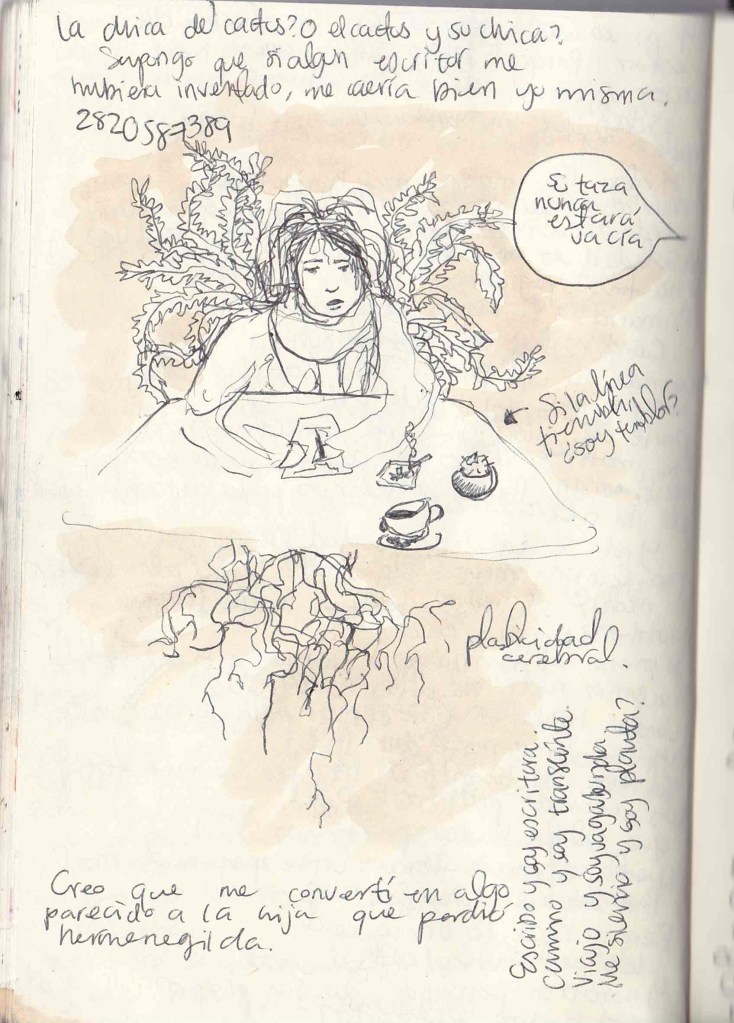 La chica del cactus? O el cactus y su chica?
Supongo que si algún escritor me
hubiera inventado, me caería bien yo misma.
2820587389
Su taza
nunca
estará
vacía
Si la línea
tiembla
¿soy temblor?
plasticidad
cerebral.
Escribo y soy escritura.
Camino y soy transeúnte.
Viajo y soy vagabunda.
Me silencio y soy planta?
Creo que me convertí en algo
parecido a la hija que perdió
hermenegilda.